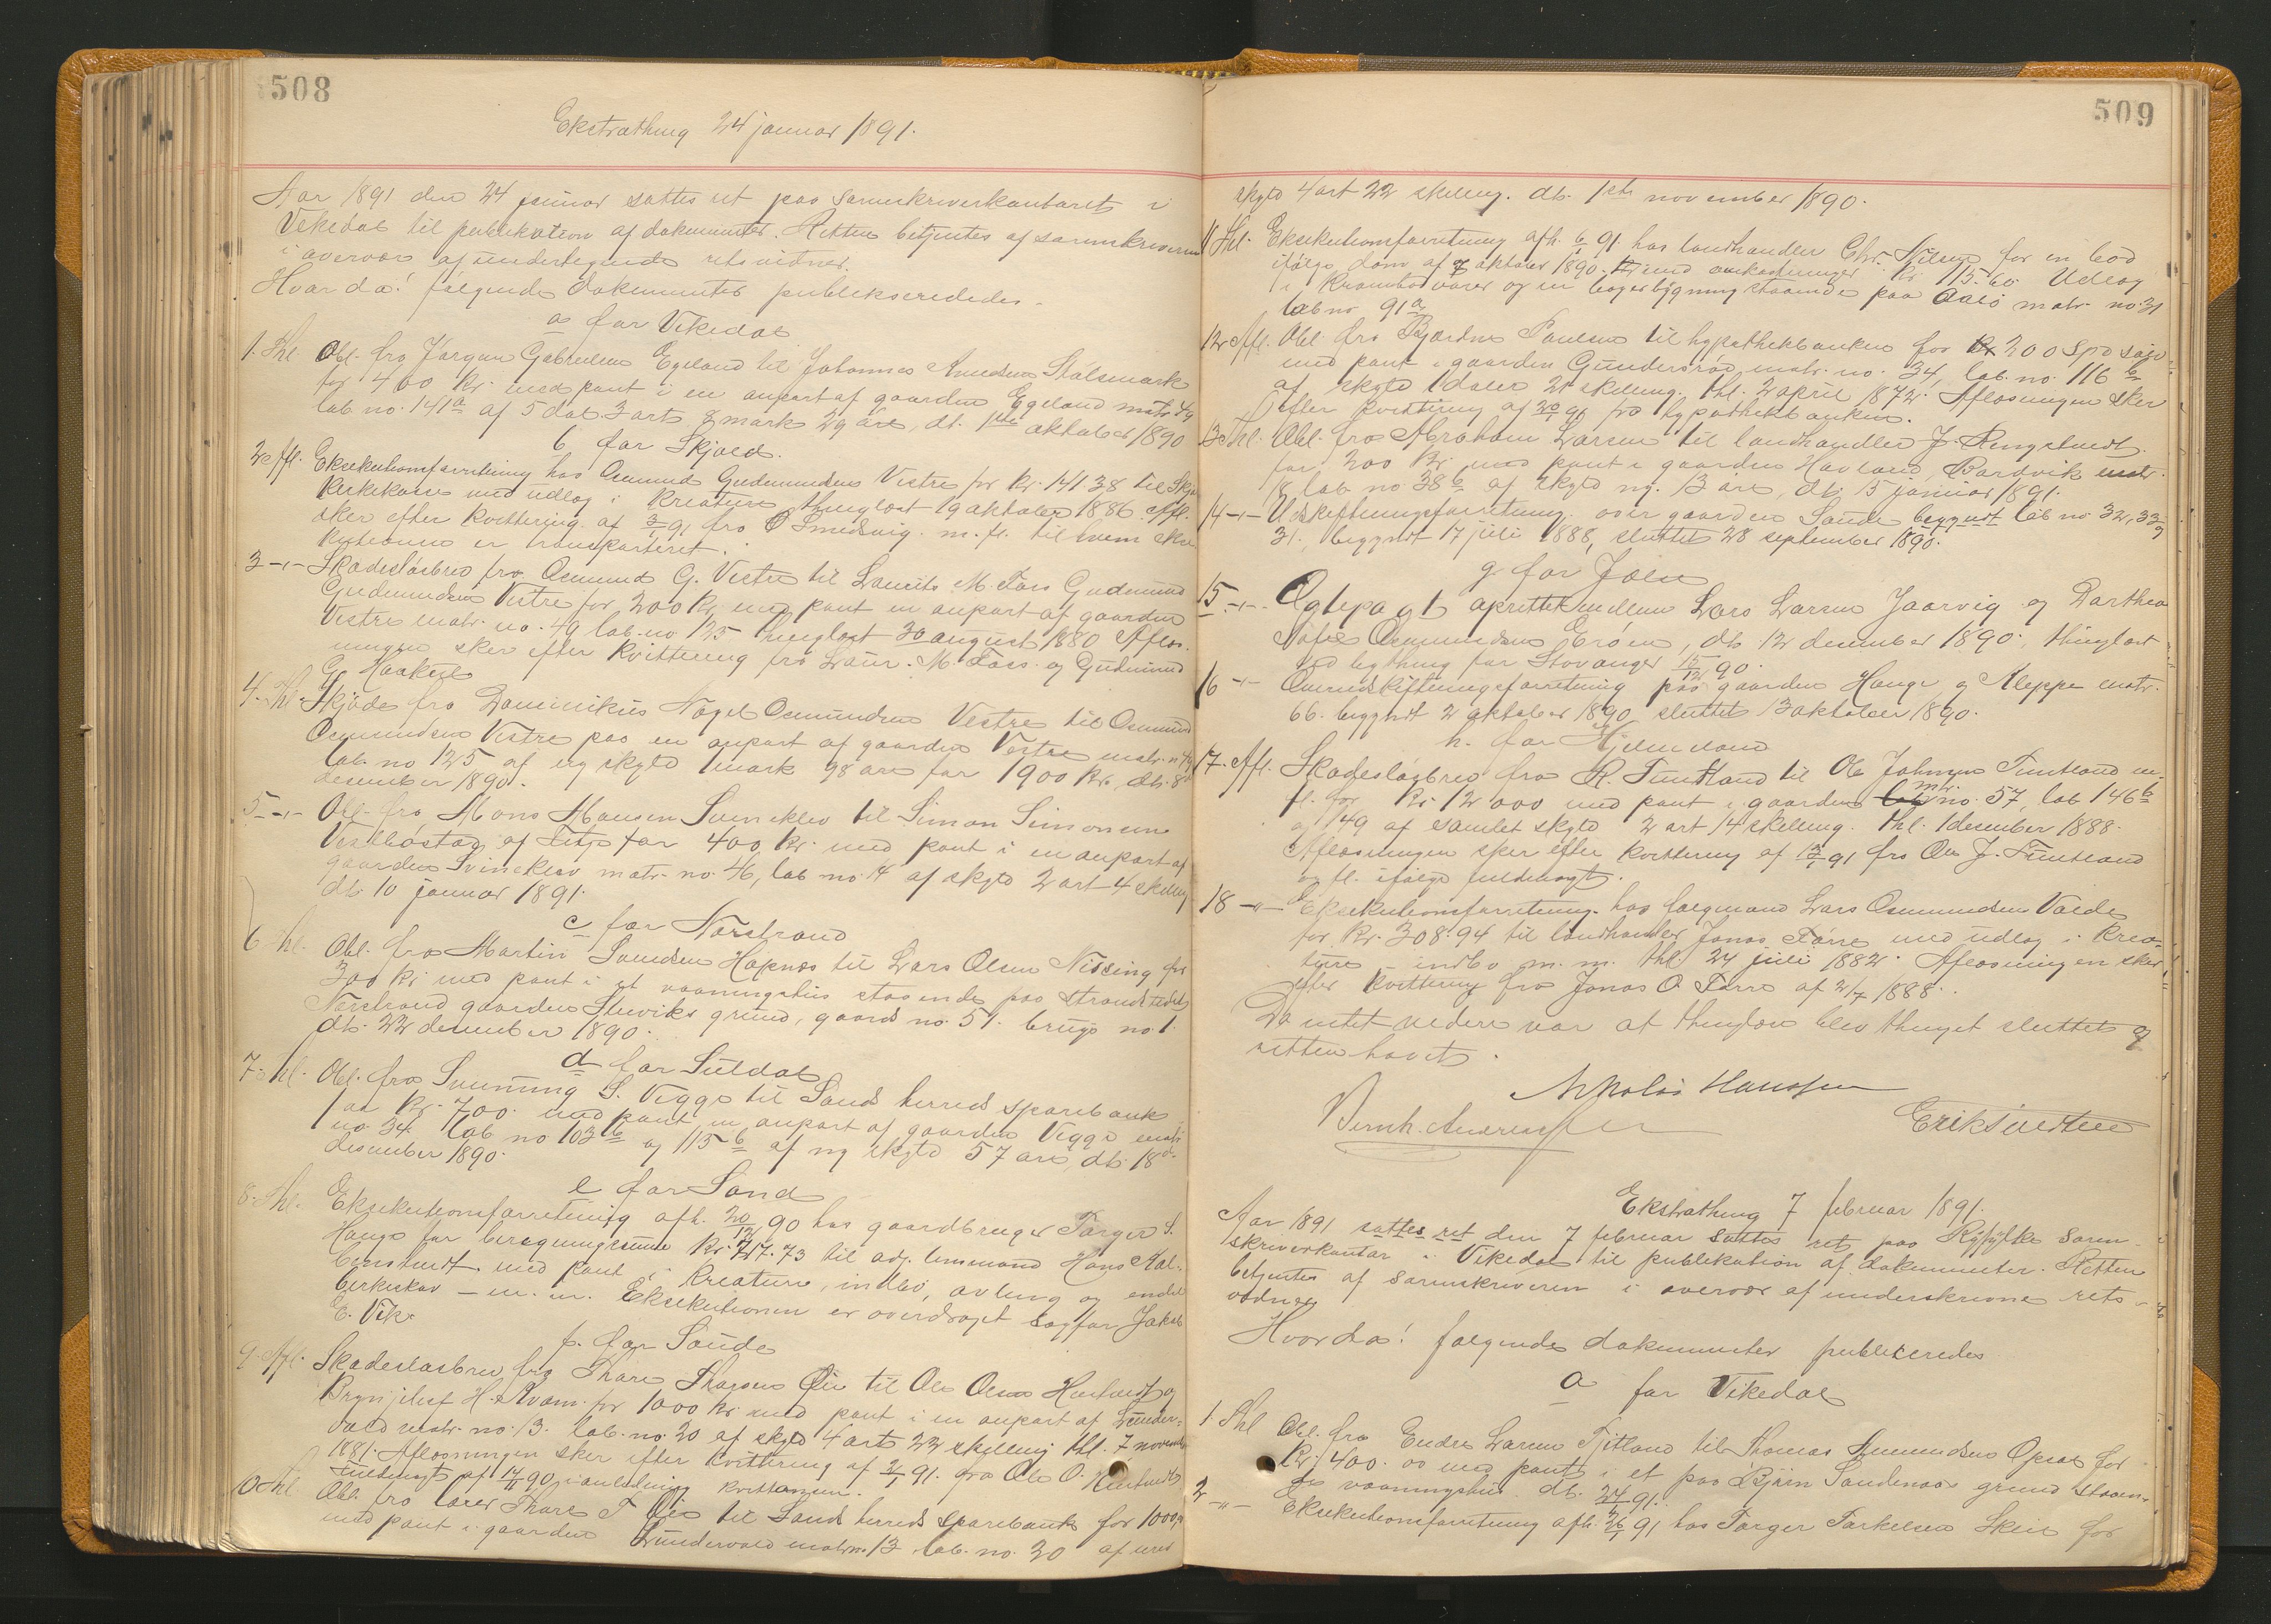 508
Ekstrathing 24 januar 1891.
Aar 1891 den 24 januar sattes ret paa sorenskriverkontoret i
Vikedal til publikation af dokumenter. Retten betjentes af sorenskriveren
i overvær af undertegnede retsvidner.
Hvorda! følgende dokumenter publiseredes.
a for Vikedal
1. Thl. Obl. fra Jørgen Gabrielsen Egeland til Johannes Amundsen Stålsmark
for 400 kr. med pant i en anpart af gaarden Egeland matr 49
lob no. 141a af 5 dal. 3 ort 8 mark 29 øre, dt. 1ste oktober 1890
b for Skjold.
2. Afl. Eksekutionsforretning hos Osmund Gudmundsen Vestre for kr. 14138 til Skjo
kirkekasse med udlæg i kreature thinglæst 19 oktober 1886. Afl.
sker efter kvittering af 3/1 91 fra O Smedsvig m. fl. til hvem ekse
kutionen er transporteret.
3 -"- Skadesløsbrev fra Osmund G. Vestre til Laurits M. Foss Gudmund
Gudmundsen Vestre for 200 kr. med pant en anpart af gaarden
Vestre matr. no. 49 lob. no 125 thinglæst 30 august 1880 Afløs.
ningen sker efter kvittering fra Laur. M. Foss og Gudmund
G. Haakul
4. Thl. Skjøde fra Dominikus Nagel Osmundsen Vestre til Osmund
Osmundsen Vestre paa en anpart af gaarden Vestre matr. n. 49
lob. no 125 af ny skyld 1 mark 98 øre for 1900 kr., dt. 8de
desember 1890.
5 -"- Obl. fra Mons Monsen Svinekleo til Simon Simonsen
Vestbøstad af Tits for 400 kr. med pant i en anpart af
gaarden Svinekleo matr. no. 46, lob no. 14 af skyld 2 ort 4 skilling
dt. 10 januar 1891.
c for Nærstrand
6 Thl. Obl. fra Martin Svendsen Hapnes til Lars Olsen Nissing for
300 kr. med pant i et vaaningshus staaende paa strandstedet
Nærstrand gaarden Steviks grund, gaards no. 51. brugs no. 1.
dt. 22 desember 1890.
d for Suldal
7. Thl. Obl. fra Svenning S. Vigge til Sands herreds sparebank
for kr. 700. med pant en anpart af gaarden Vigge matr
no. 34. lob no 103b og 115b af ny skyld 57 øre, dt. 18de
desember 1890.
e for Sand
8. Thl. Eksekutionsforretning afh. 20/12 90 hos gaardbruger Torger S.
Hauge for beregningssum kr. 717.73 til adj. lensmand Hans Aal-
bensturdt med pant i kreature, indbo, avling og endel
birkeskov - m. m. Eksekutionen er overdraget sagfør Jakob
E. Vik.
f. for Saude
9. Afl. Skadesløsbrev fra Thore Thorsen Øie til Ole Olsen Hustveit og
Brynjulf H. Kvam for 1000 kr. med pant i en anpart af Lunder-
vold matr. no. 13. lob. no. 20 af skyld 4 ort 22 skilling thl. 7 november
1881. Afløsningen sker efter kvittering af 2/1 91. fra Ole O. Hustveit
fuldmagt af 14/11 90 i anledning kvittansen.
10 Thl Obl. fra lærer Thore T Øie til Sands herreds sparebank for 1000 kr
med pant i gaarden Lundervold matr. no. 13. lob. no. 20 af ured
509
skyld 4 ort 22 skilling. dt. 1ste november 1890.
11 Thl. Eksekutionsforretning afh. 6/1 91. hos landhandler Chr. Nilsen for en bod
ifølge dom af 7 oktober 1890. med omkostninger kr 115.60 Udlæg
i krambovarer og en lagerbygning staaende paa Aabø matr. no. 31
lob no 91a
12 Afl. Obl. fra Bjødne Paulsen til hypothekbanken for 200 Spd søgt
med pant i gaarden Gundersrød matr. no. 34, lob. no. 116b
af skyld 1 daler 21 skilling. thl. 2 april 1872. Afløsningen sker
efter kvittering af 20/1 91 fra hypothekbanken.
13 Thl. Obl. fra Abraham Larsen til landhandler J. Ringstvedt
for 200 kr. med pant i gaarden Havland, Bardvik matr.
18 lob no 38b af skyld ny. 13 øre, dt. 15 januar 1891.
14 -"- Udskiftningsforretning over gaarden Saude begyndt lob no 32, 33 og
31, begyndt 17 juli 1888, sluttet 28 september 1890.
g for Jælse
15. -"- Ægtepagt oprettet mellem Lars Larsen Jaarvig og Dorthea
Sofie Osmundsen Erøen, dt. 12 desember 1890, thinglæst
ved bything for Stavanger 15/12 90.
16 -"- Omudskiftningsforretning paa gaarden Hauge og Kleppe matr.
66. begyndt 2 oktober 1890 sluttet 13 oktober 1890.
h. for Hjelmeland
17. Afl. Skadesløsbrev fra R. Tuntland til Ole Johnsen Tuntland m.
fl. for kr. 12000 med pant i gaarden matr. no. 57, lob 146b
og 149 af samlet skyld 2 ort 14 skilling. thl. 1 desember 1888.
Afløsningen sker efter kvittering af 12/1 91 fra Ole J. Tuntland
og fl. ifølge fuldmagt.
18 -"- Eksekutionsforretning hos forgmand Lars Osmundsen Valde
for kr. 308.94 til landhandler Jonas Tørre med udlæg i krea-
ture - indbo m. m. thl 24 juli 1882. Afløsningen sker
efter kvittering fra Jonas O. Tørre af 2/7 1888.
Da intet videre var at thinglæse blev thinget sluttet og
retten hævet.
Nikolai Hanssen
Bernh. Andreassen
Erik Sivertsen
Ekstrathing 7 februar 1891.
Aar 1891 sattes ret den 7 februar sattes ret paa Ryfylke soren-
skriverkontor i Vikedal til publikation af dokumenter. Retten
betjentes af sorenskriveren i overvær af underskrevne rets-
vidner
Hvorda! følgende dokumenter publiseredes
a for Vikedal
1. Thl Obl. fra Endre Larsen Fitland til Thomas Amundsen Opsal for
kr. 1400.00 med pant i et paa Bjørn Sandenæs grund staaen-
de vaaningshus. dt. 24/1 91.
2 -"- Eksekutionsforretning afh. 26/1 91 hos Torger Torkelsen Skeie for